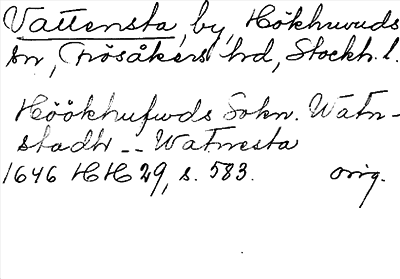 Vattensta, by, Hökhuvuds
sn, Frösåkers hd, Stockh. l.
Höökhufwds Sokn. Watn-
stadh -- Watnesta
1646 HH 29, s. 583. orig.